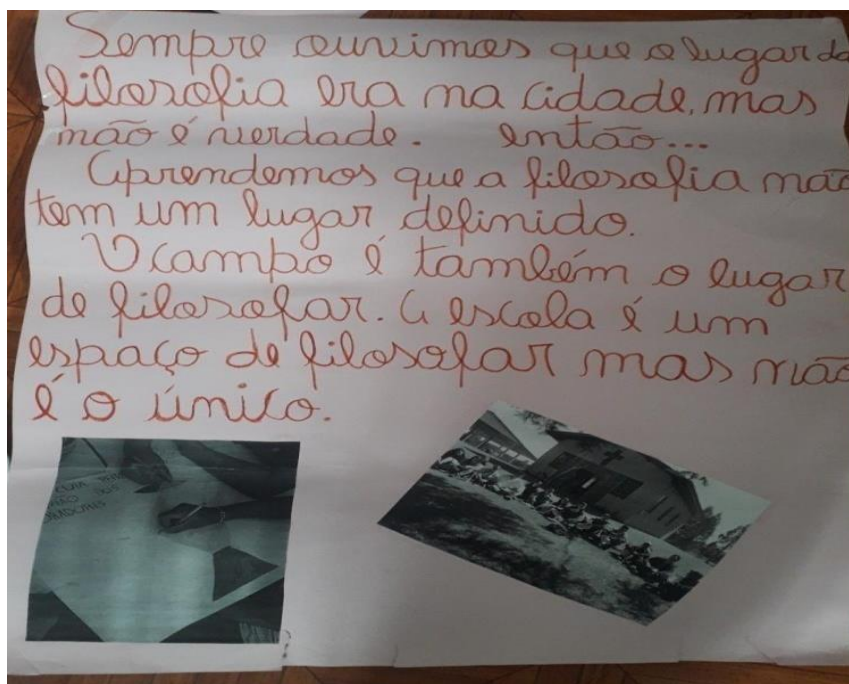 Sempre ouvimos que o lugar da
filosofia era na cidade, mas
não é verdade. então...
Aprendemos que a filosofia não
tem um lugar definido.
O campo é também o lugar
de filosofar. A escola é um
espaço de filosofar mas não
é o único.